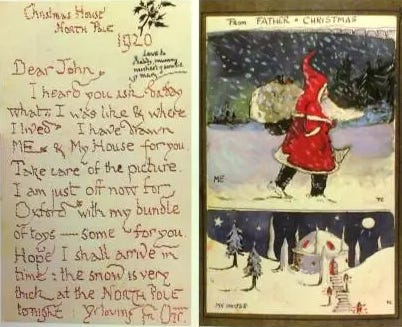 Christmas House
NORTH POLE
1920
Love to
daddy, mummy
michael & auntie
& mary
Dear John,
I heard you ask daddy
what I was like & where
I lived. I have drawn
ME & My House for you.
Take care of the picture.
I am just off now for
Oxford with my bundle
of toys — some for you.
Hope I shall arrive in
time : the snow is very
thick at the NORTH POLE
tonight. Yr loving Fr. Chr.
From FATHER • CHRISTMAS
ME
FC
MY HOUSE
FC